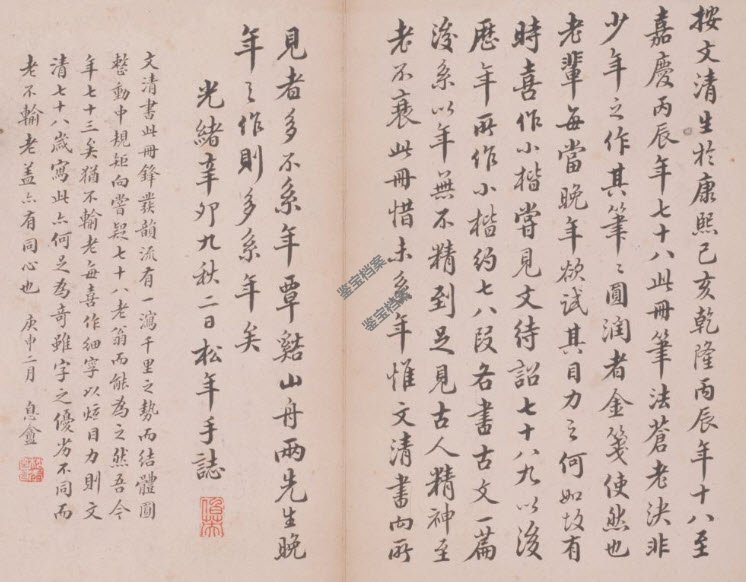 按文清生於康熙己亥乾隆丙辰年十八至
嘉慶丙辰年七十八此冊筆法蒼老決非
少年之作其筆〻圓潤者金箋使然也
老輩每當晚年欲試其目力之何如故有
時喜作小楷嘗見文待詔七十八九以後
歷年所作小楷約七八段各書古文一篇
後系以年無不精到足見古人精神至
老不衰此冊惜未系年惟文清書向所
見者多不系年覃谿山舟兩先生晚
年之作則多系年矣
光緒辛卯九秋二日松年手誌
文清書此冊鋒發韻流有一瀉千里之勢而結體圓
整動中規矩向嘗疑七十八老翁而能為之然吾今
年七十三矣猶不輸老每喜作細字以炫目力則文
清七十八歲寫此亦何足為奇雖字之優劣不同而
老不輸老蓋亦有同心也 庚申二月 息盦
鉴宝档案
鉴宝档案